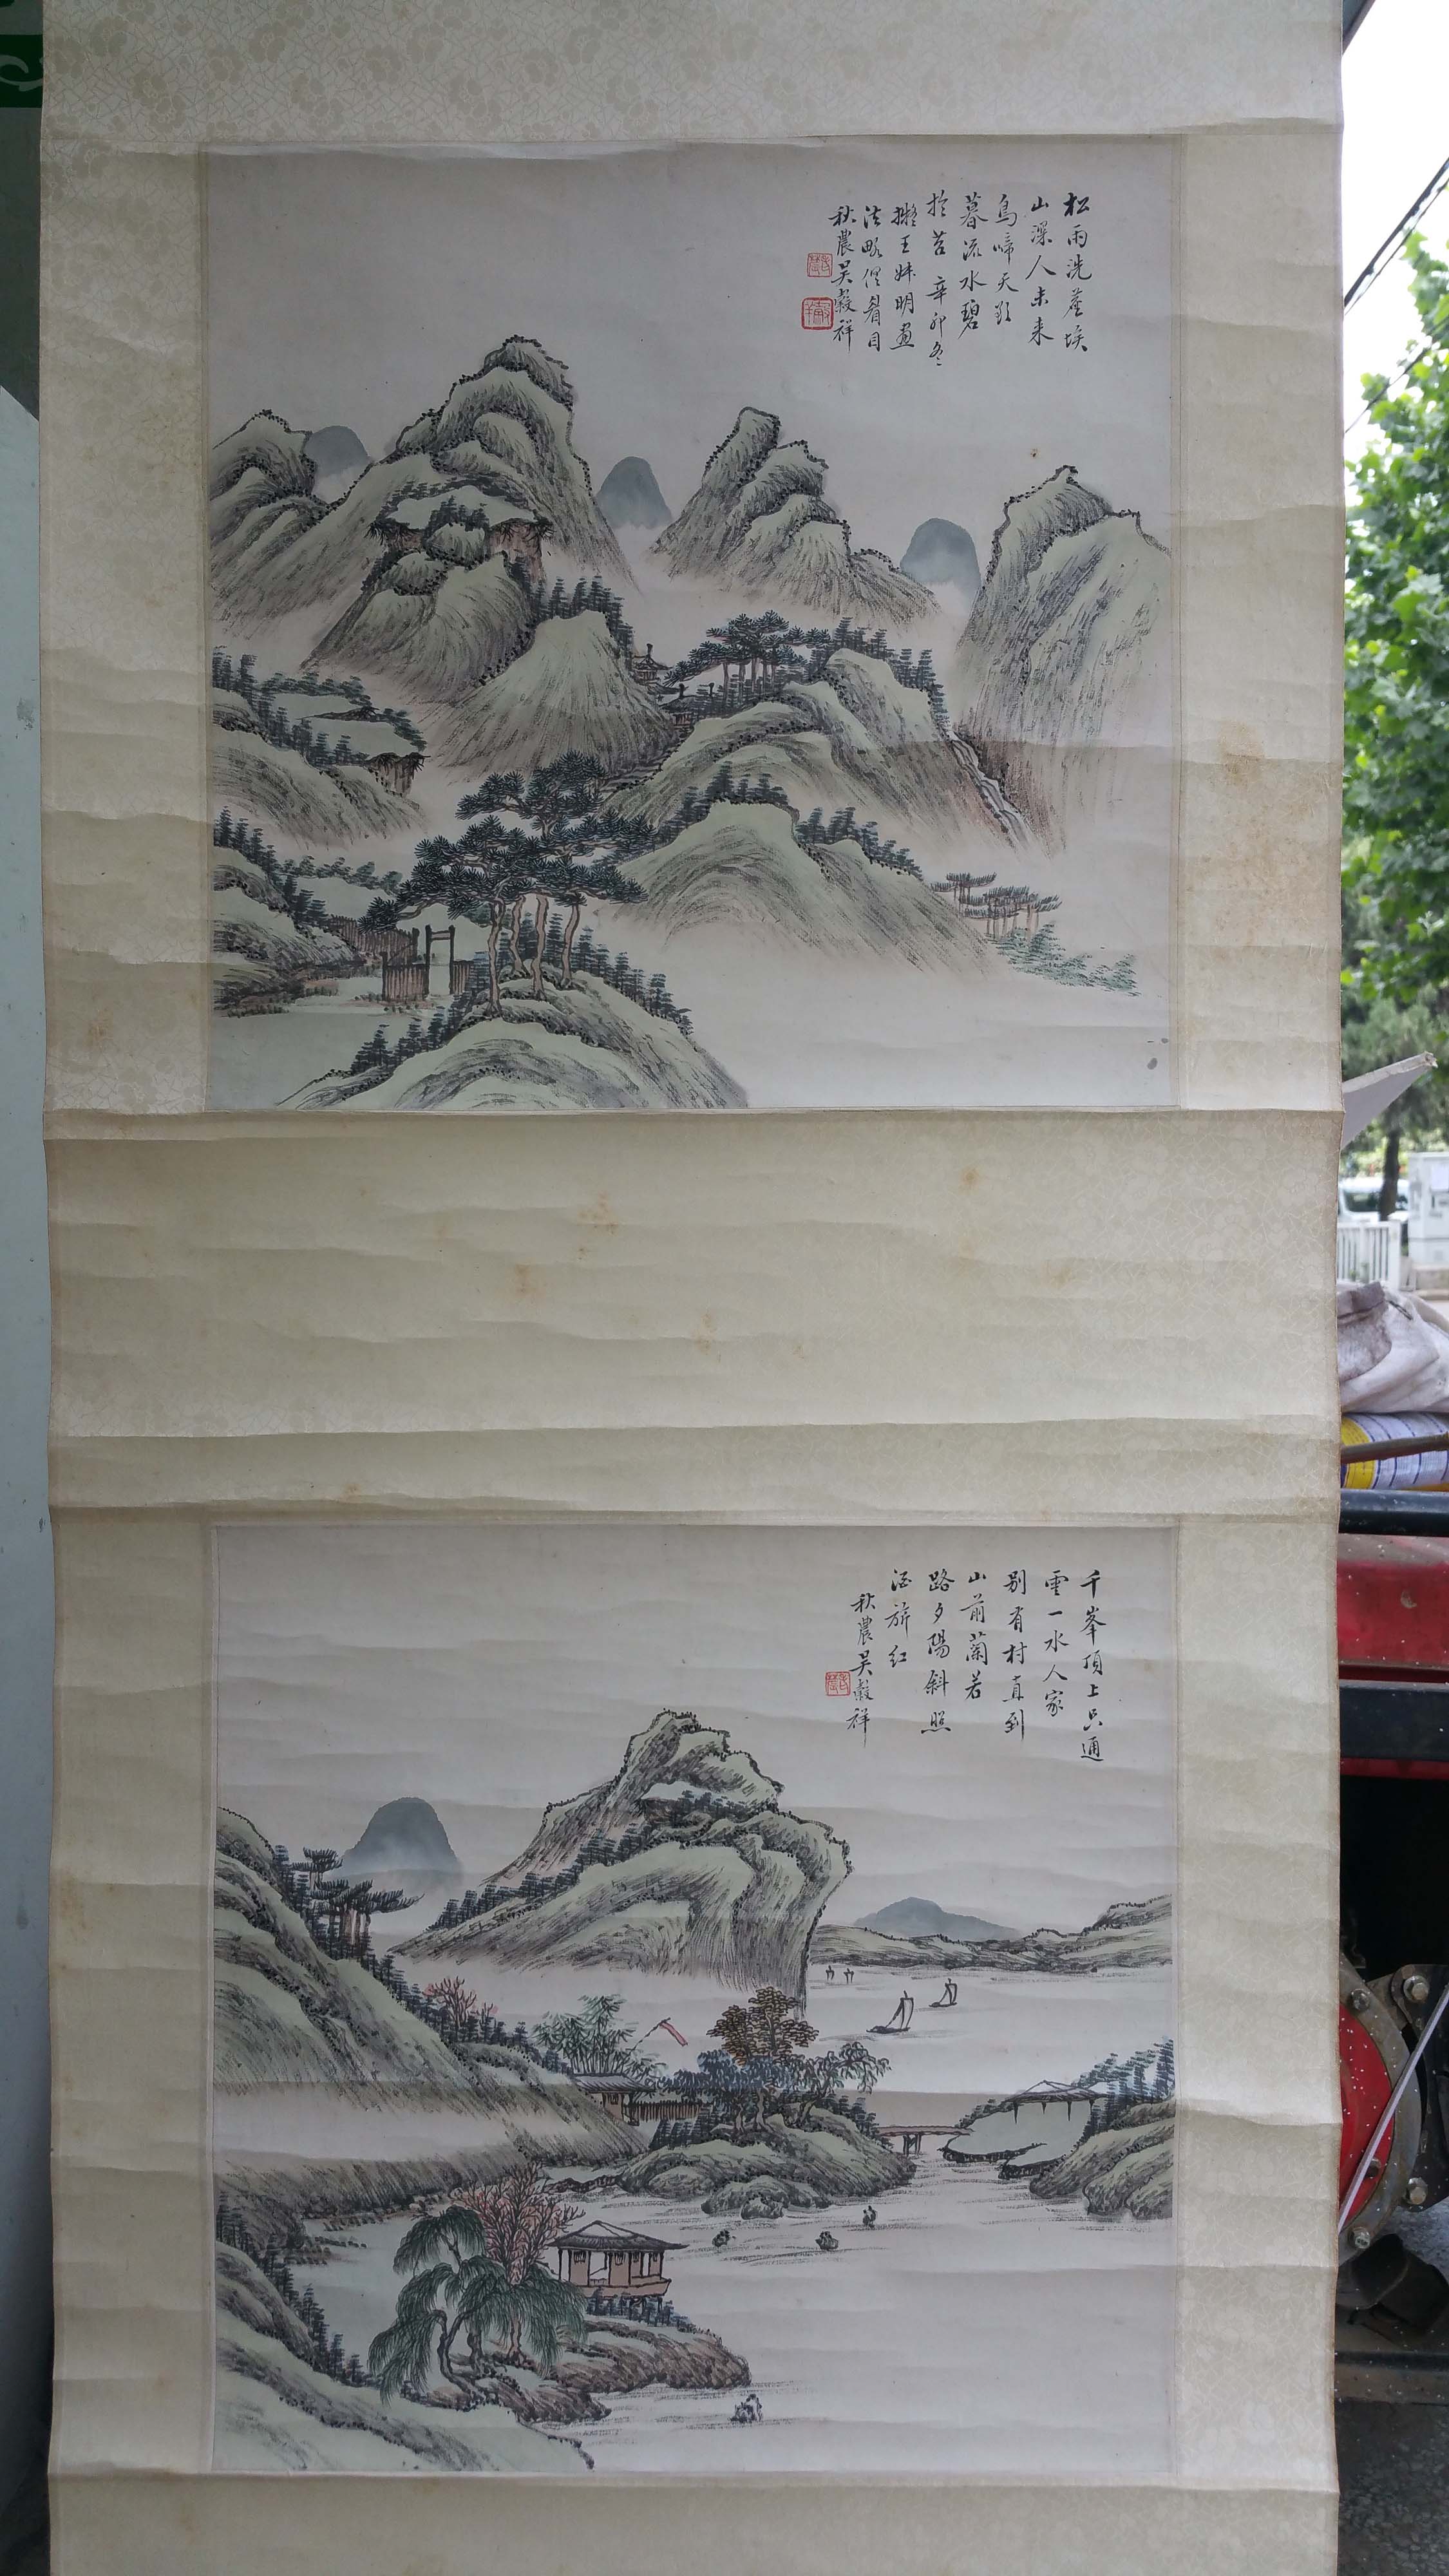 松雨洗塵埃
山深人未来
鳥啼天欲
暮流水碧
於苔 辛卯冬
擬王叔明畫
法略得眉目
秋農吳穀祥
千峯頂上只通
雲一水人家
別有村直到
山前蘭若
路夕陽斜照
酒旂紅
秋農吳穀祥